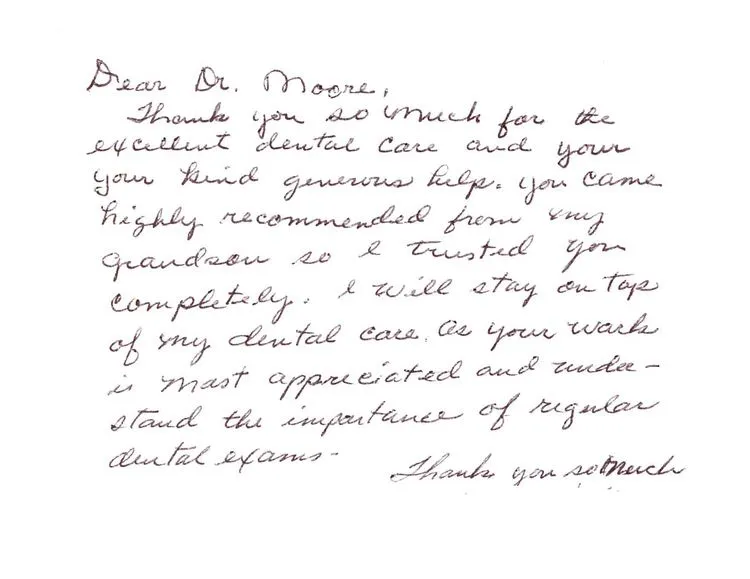 Dear Dr. Moore,
Thank you so much for the
excellent dental care and your
your kind generous help. you came
highly recommended from my
grandson so I trusted you
completely. I will stay on top
of my dental care. as your work
is most appreciated and under-
stand the importance of regular
dental exams-
Thank you so much